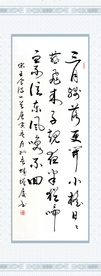 三月残花落更开小檐日日
燕飞来子规夜半犹啼
血不信东风唤不回